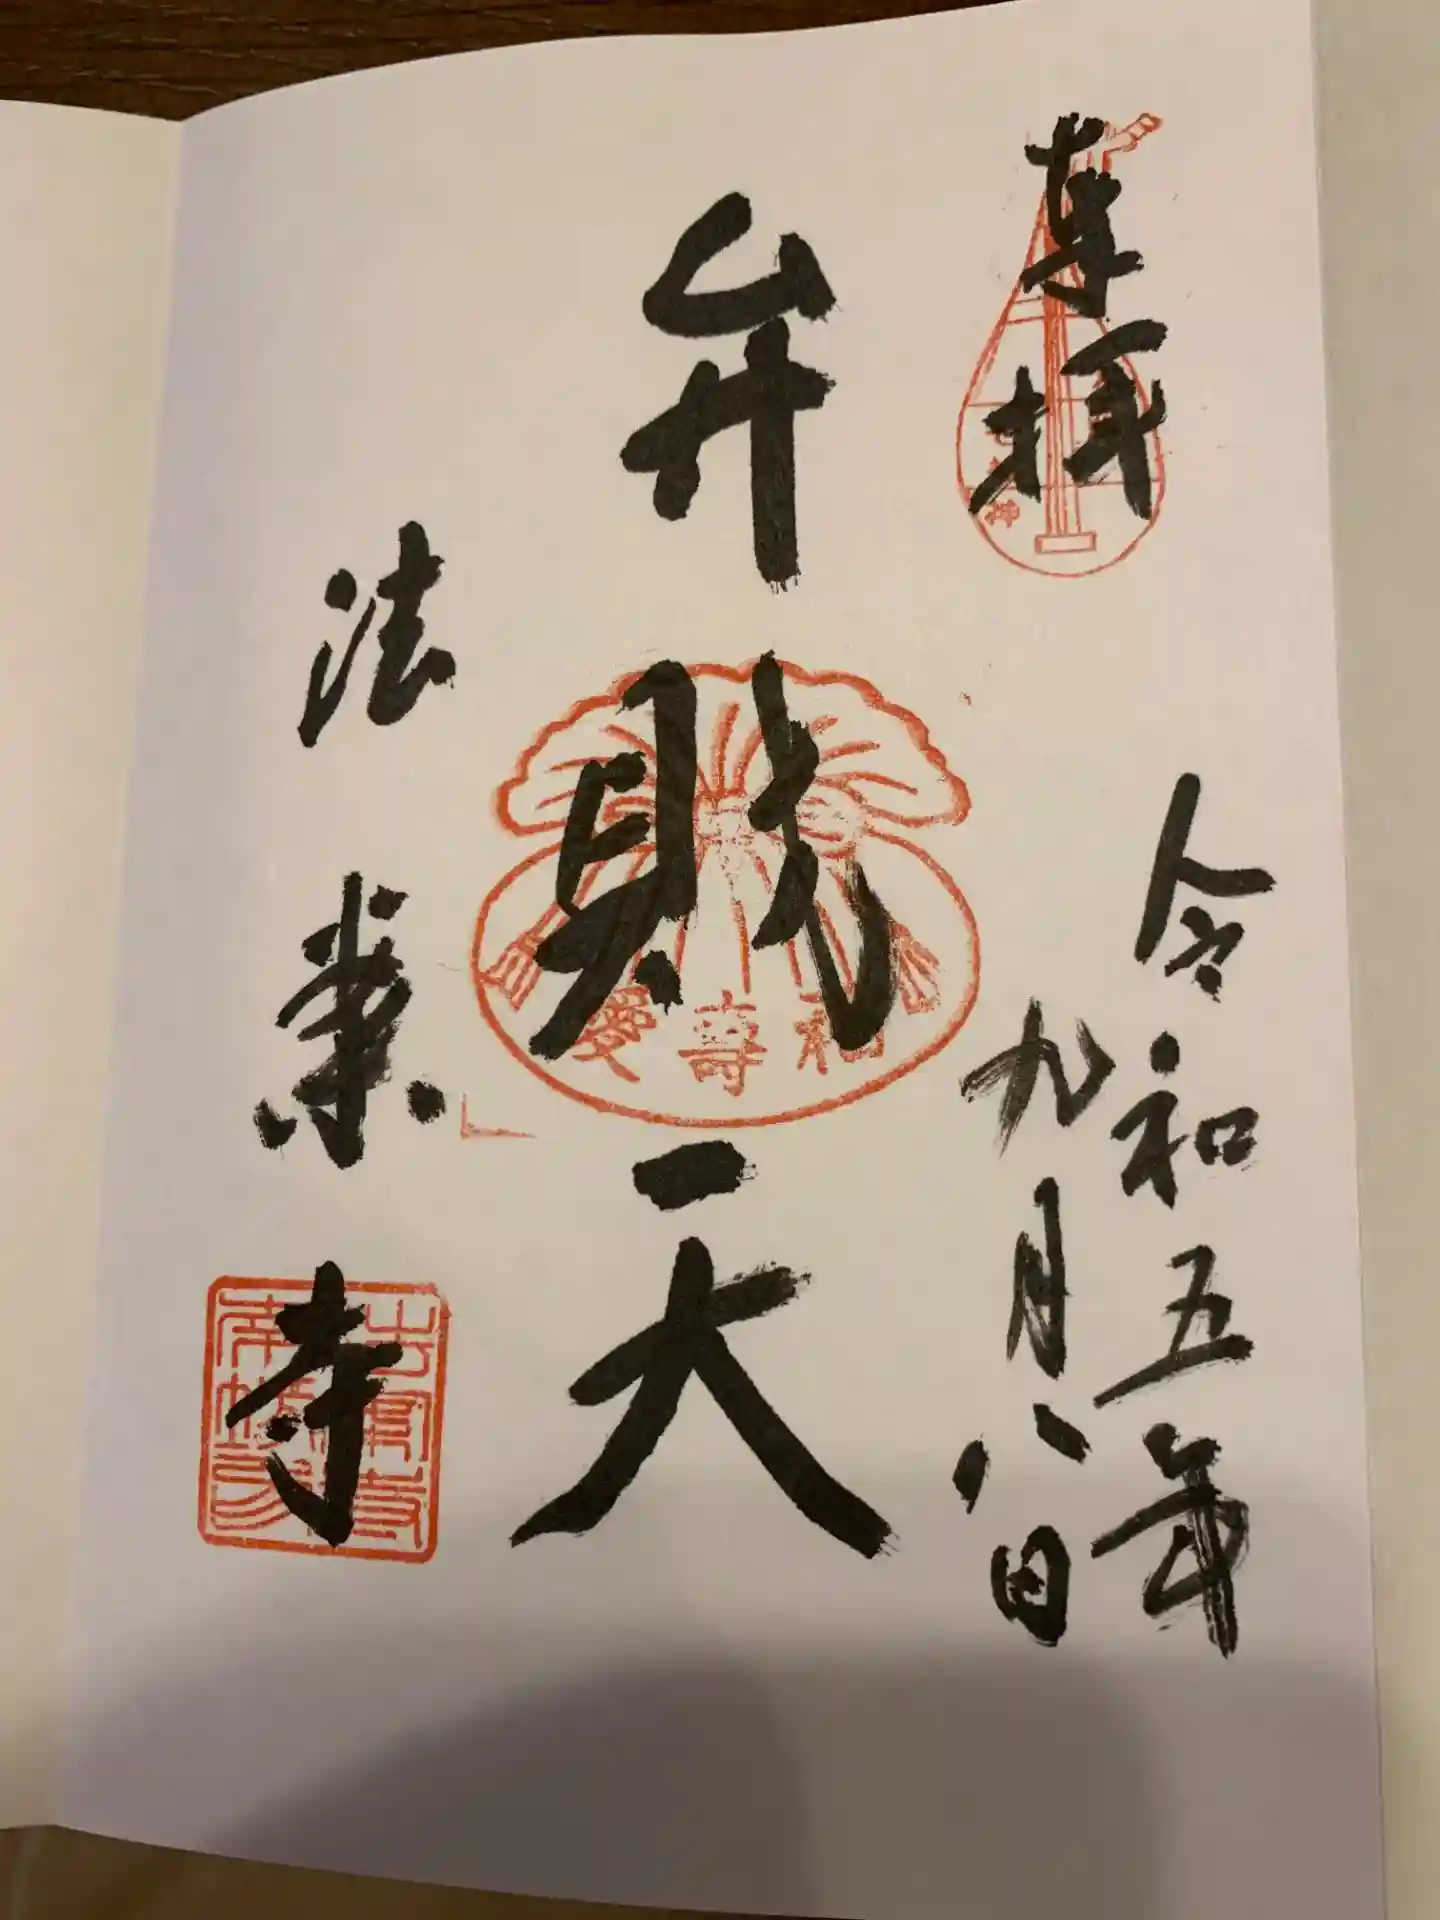 奉拝
令和五年
九月八日
弁財天
和壽愛
法業寺